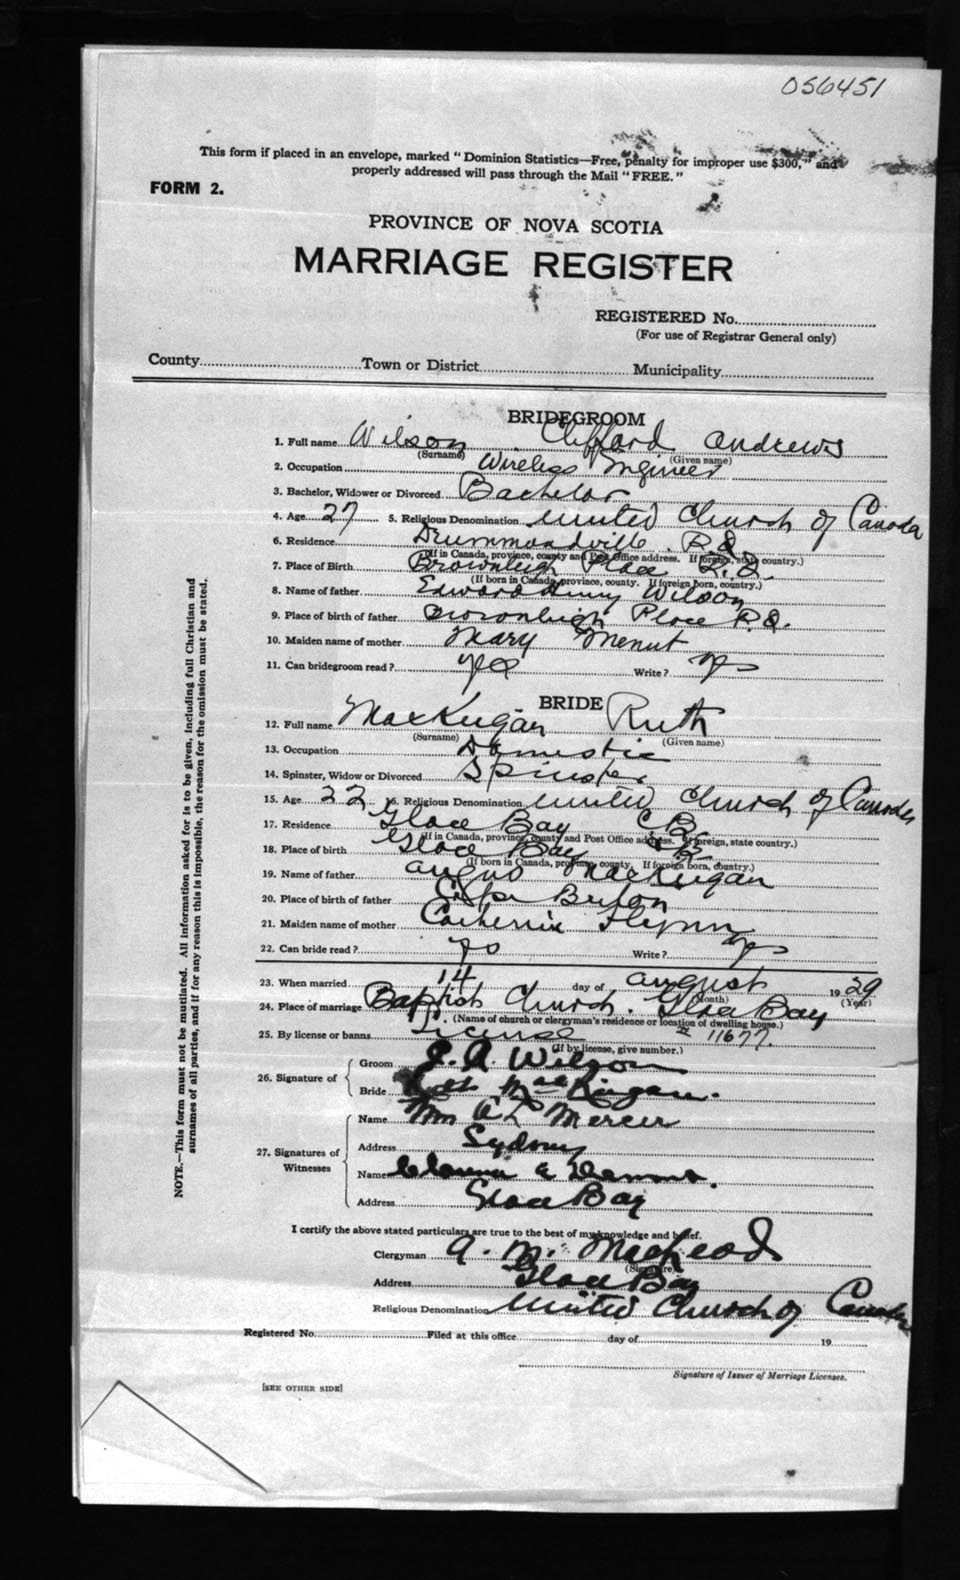 056451
This form if placed in an envelope, marked "Dominion Statistics—Free, penalty for improper use $300," and
properly addressed will pass through the Mail "FREE."
FORM 2.
PROVINCE OF NOVA SCOTIA
MARRIAGE REGISTER
REGISTERED No.
(For use of Registrar General only)
County Town or District Municipality
BRIDEGROOM
1. Full name Wilson Clifford Andrews
(Surname) (Given name)
2. Occupation Wireless Engineer
3. Bachelor, Widower or Divorced Bachelor
4. Age 27 5. Religious Denomination United Church of Canada
6. Residence Drummondville P.Q.
(If in Canada, province, county and Post Office address. If foreign, state country.)
7. Place of Birth Brownleigh Place P.Q.
(If born in Canada, province, county. If foreign born, country.)
8. Name of father Edward Henry Wilson
9. Place of birth of father Brownleigh Place P.Q.
10. Maiden name of mother Mary Menut
11. Can bridegroom read? yes Write? yes
BRIDE
12. Full name MacKeigan Ruth
(Surname) (Given name)
13. Occupation Domestic
14. Spinster, Widow or Divorced Spinster
15. Age 22 16. Religious Denomination United Church of Canada
17. Residence Glace Bay C.B.
(If in Canada, province, county and Post Office address. If foreign, state country.)
18. Place of birth Glace Bay C.B.
(If born in Canada, province, county. If foreign born, country.)
19. Name of father Angus MacKeigan
20. Place of birth of father Cape Breton
21. Maiden name of mother Catherine Flynn
22. Can bride read? yes Write? yes
23. When married 14 day of August 1929
(Month) (Year)
24. Place of marriage Baptist Church Glace Bay
(Name of church or clergyman's residence or location of dwelling house.)
25. By license or banns License 11677
(If by license, give number.)
26. Signature of
Groom C. A. Wilson
Bride Ruth MacKeigan.
27. Signatures of
Witnesses
Name Mrs A L Mercer
Address Sydney
Name E
Address Glace Bay
I certify the above stated particulars are true to the best of my knowledge and belief.
Clergyman A. M. MacLeod
(Signature)
Address Glace Bay
Religious Denomination United Church of Canada
Registered No. Filed at this office day of 19
Signature of Issuer of Marriage Licenses.
[SEE OTHER SIDE]
NOTE.—This form must not be mutilated. All information asked for is to be given, including full Christian and
surnames of all parties, and if for any reason this is impossible, the reason for the omission must be stated.